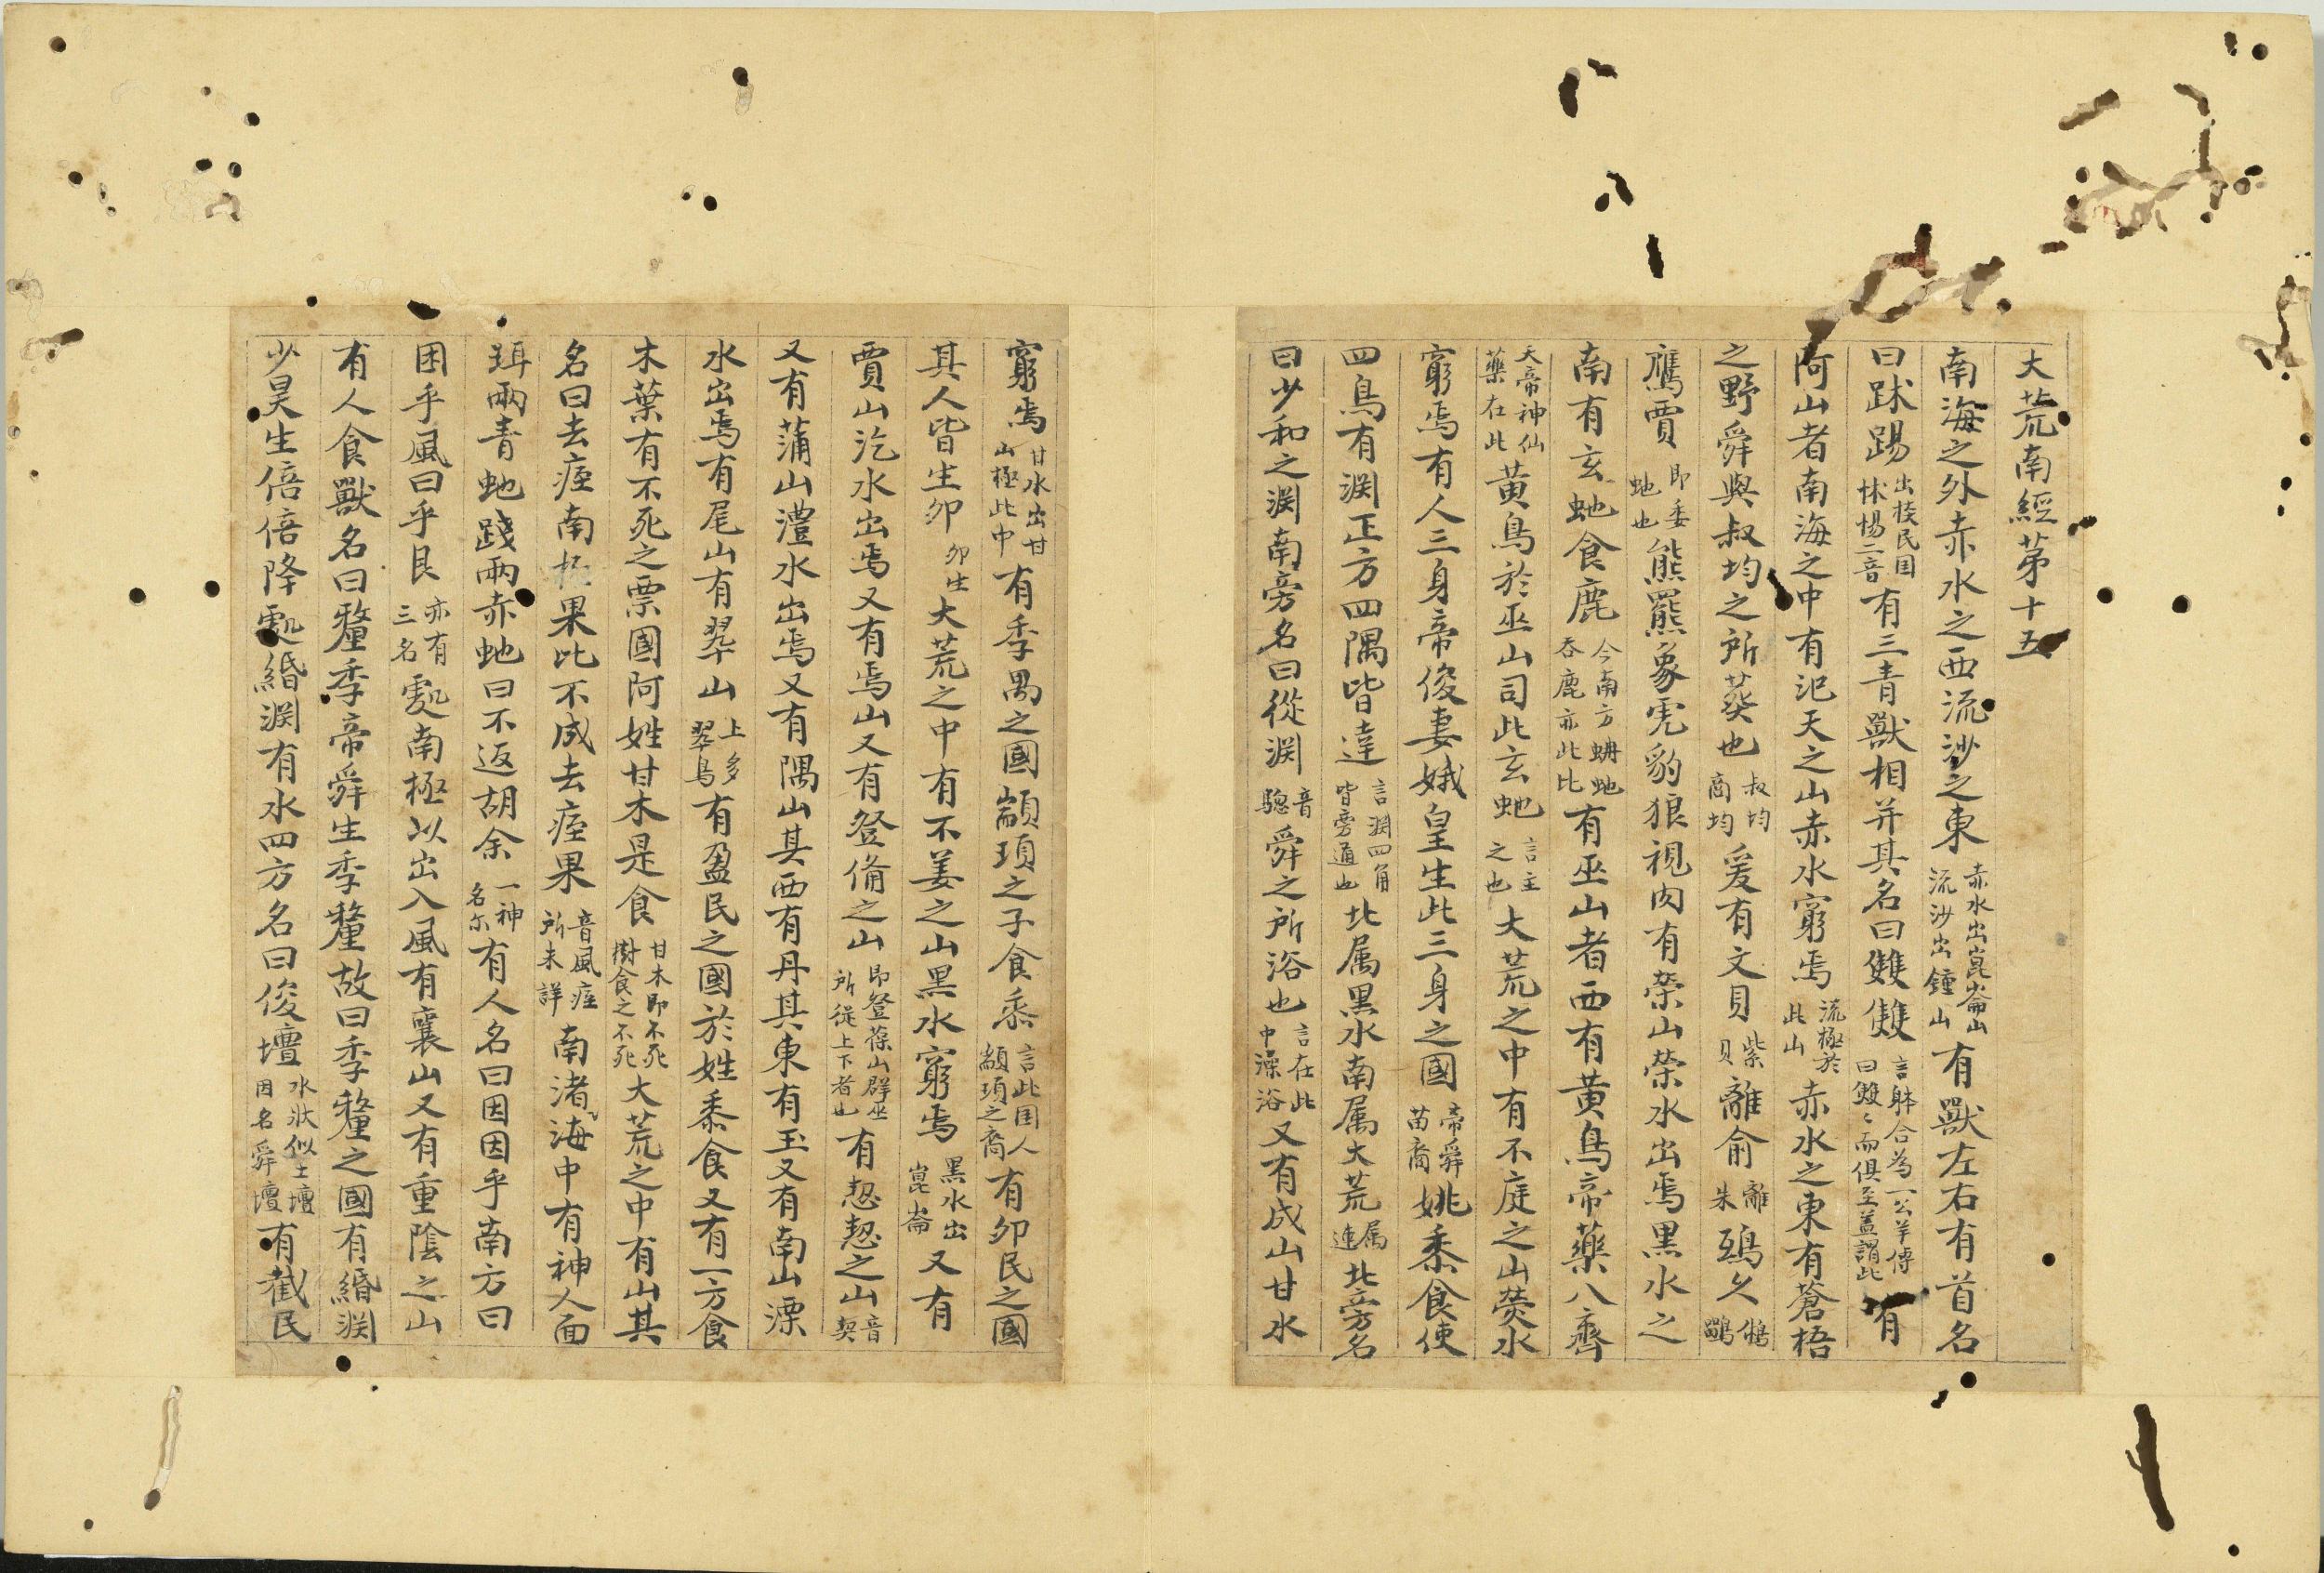 大荒南經第十五
南海之外赤水之西流沙之東赤水出崑崙山流沙出鍾山有獸左右有首名
曰跊踢出狡民国怵惕二音有三青獸相并其名曰雙雙言躰合為一公羊傳曰雙〻而俱至盖謂此有
阿山者南海之中有氾天之山赤水窮焉流極於此山赤水之東有蒼梧
之野舜與叔均之所葬也叔均商均爰有文貝紫貝離俞離朱鴟久鵂鶹
鷹賈即委虵也熊羆象虎豹狼視肉有榮山榮水出焉黑水之
南有玄虵食鹿今南方蚺虵吞鹿亦此比有巫山者西有黄鳥帝藥八齊
天帝神仙藥在此黄鳥於巫山司此玄虵言主之也大荒之中有不庭之山熒水
窮焉有人三身帝俊妻娥皇生此三身之國帝舜苗裔姚黍食使
四鳥有渊正方四隅皆達言渊四角皆旁通也北属黑水南属大荒属連北旁名
曰少和之渊南旁名曰從渊音驄舜之所浴也言在此中澡浴又有成山甘水
窮焉甘水出甘山極此中有季禺之國顓頊之子食黍言此国人顓頊之裔有卵民之國
其人皆生卵卵生大荒之中有不姜之山黑水窮焉黑水出崑崙又有
賈山汔水出焉又有焉山又有登俻之山即登葆山群巫所從上下者也有恝恝之山音契
又有蒲山澧水出焉又有隅山其西有丹其東有玉又有南山漂
水出焉有尾山有翠山上多翠鳥有盈民之國於姓黍食又有一方食
木葉有不死之票國阿姓甘木是食甘木即不死樹食之不死大荒之中有山其
名曰去痓南極果比不成去痓果音風痓所未詳南渚海中有神人面
珥兩青虵踐兩赤虵曰不返胡余一神名尔有人名曰因因乎南方曰
因乎風曰乎艮亦有三名處南極以出入風有襄山又有重陰之山
有人食獸名曰𨤲季帝舜生季𨤲故曰季𨤲之國有緡渊
少昊生倍倍降處緡渊有水四方名曰俊壇水狀似土壇因名舜壇有载民